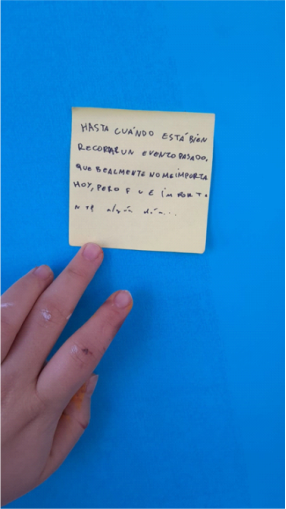 HASTA CUÁNDO ESTÁ BIEN
RECORDAR UN EVENTO PASADO,
QUE REALMENTE NO ME IMPORTA
HOY, PERO FUE IMPORTA
NTE algún día...